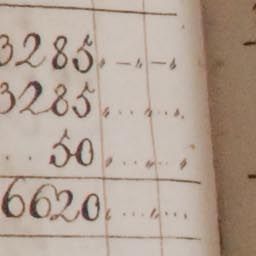 3285.,.–,.–,
3285.,...,...,
..50.,...,...,
6620,....,....